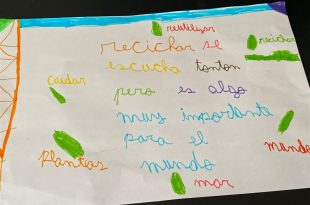 reutilizar
reciclar se
reciclar
escucha tonton
cuidar
pero es algo
muy importante
para el
mundo
Plantas
mundo
mar